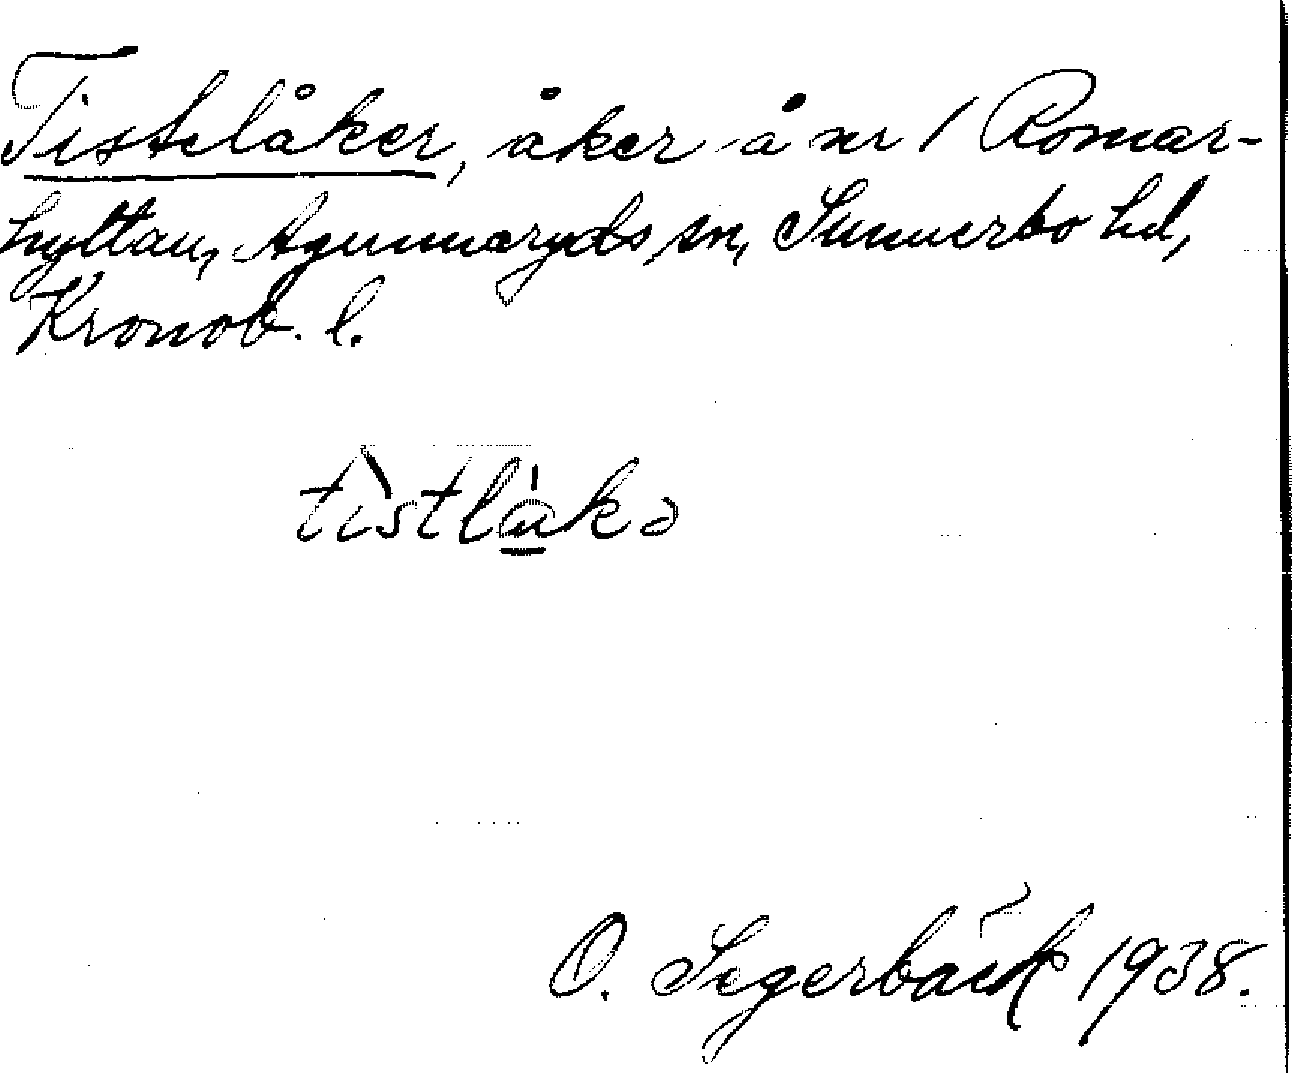 Tisteläker, åker å nr 1 Romar-
hyltan, Agunnaryds sn, Sunnerbo hd,
Kronob. l.
tìstlåkə
O. Segerbäck 1938.